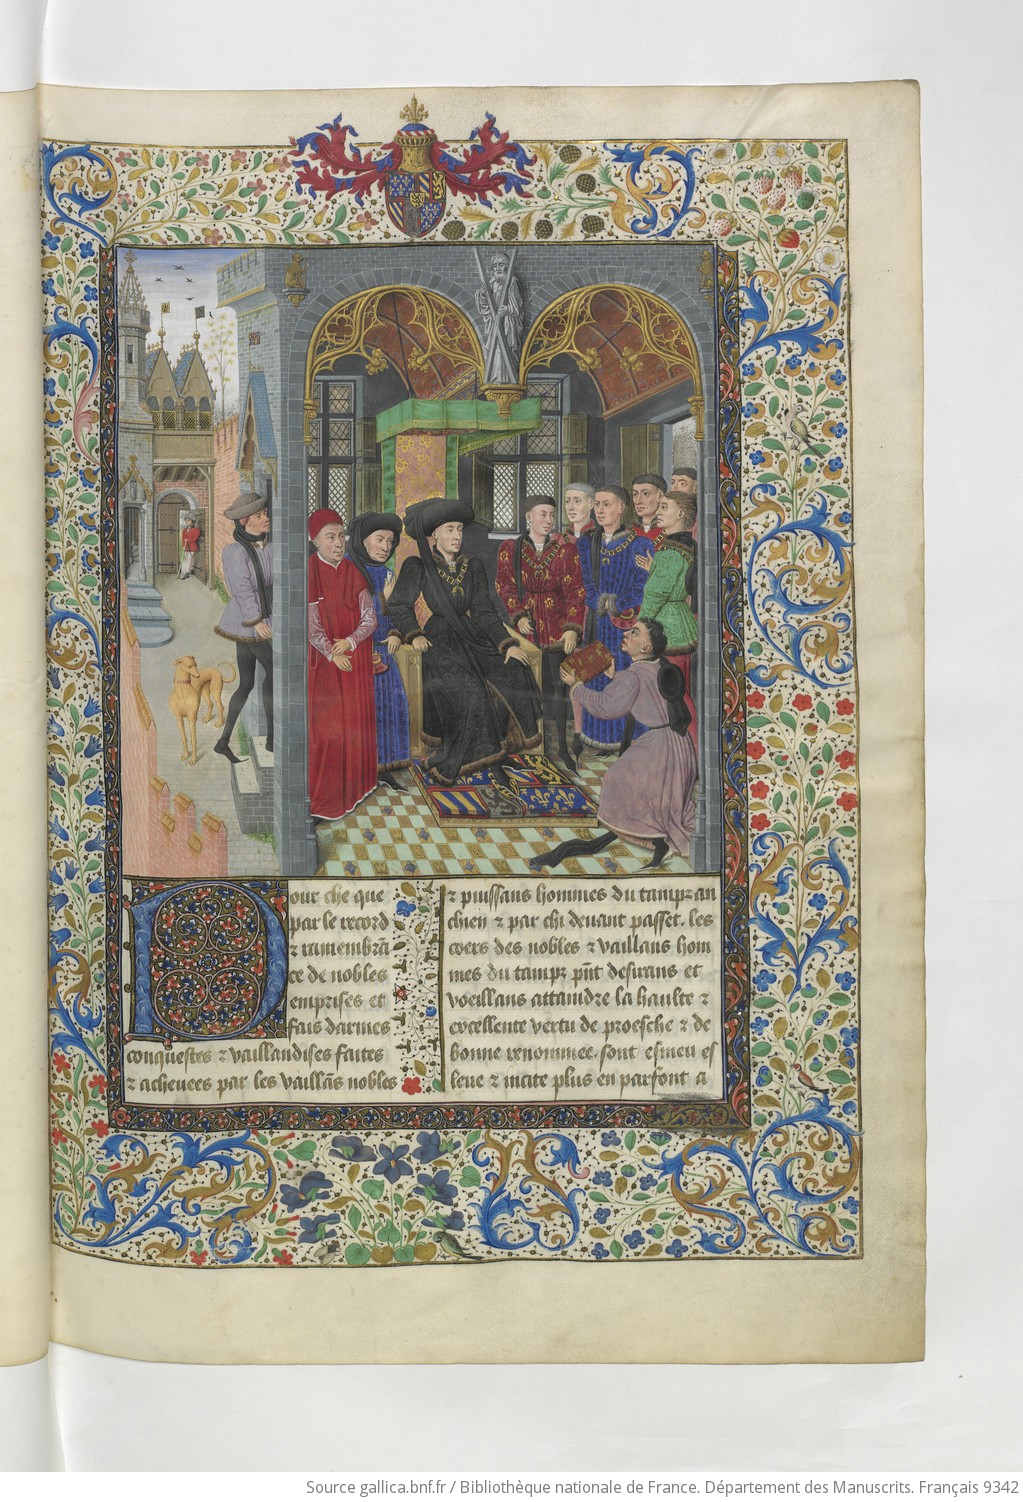 Pour che que
par le record
⁊ ramembrā
ce de nobles
emprises et
fais darmes
conquestes ⁊ vaillandises faites
⁊ acheuees par les vaillās nobles
⁊ puissans hommes du tampz an
chien ⁊ par chi deuant passet. les
coers des nobles ⁊ vaillans hom
mes du tampz pn̄t desirans et
voeillans attaindre la haulte ⁊
excellente vertu de proesche ⁊ de
bonne renommee. sont esmeu es
leue ⁊ incite plus en parfont a
Source gallica.bnf.fr / Bibliothèque nationale de France. Département des Manuscrits. Français 9342